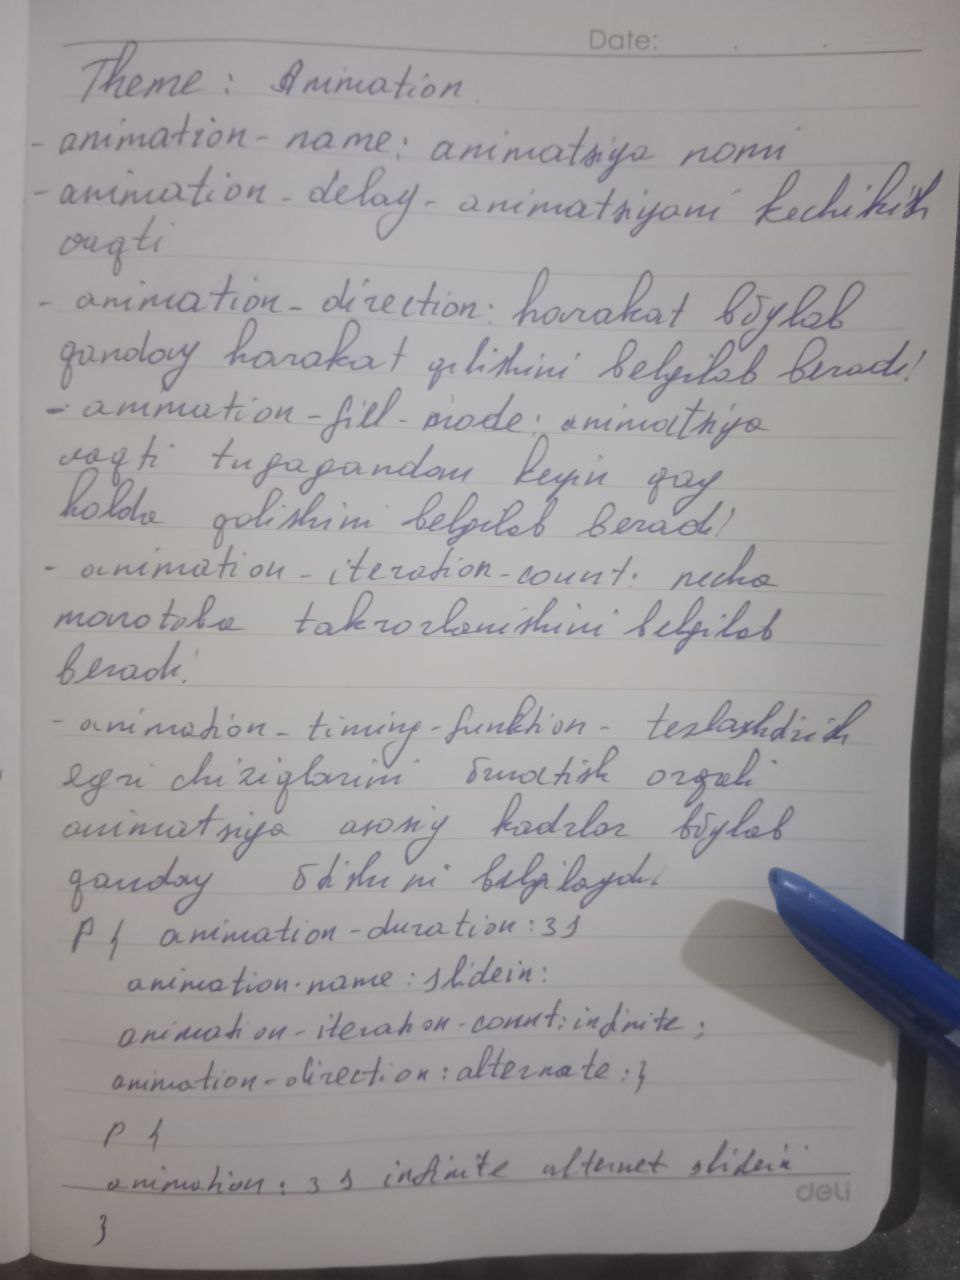 Date: . .
Theme: Animation.
- animation - name: animatsiya nomi
- animation - delay - animatsiyani kechikish
vaqti
- animation - direction: harakat bõylab
qanday harakat qilishini belgilab beradi!
- animation - fill - mode: animatsiya
vaqti tugagandan keyin qay
holda qolishini belgilab beradi!
- animation - iteration - count: necha
marotaba takrorlanishini belgilab
beradi!
- animation - timing - funktion - tezlashtirish
egri chiziqlarini õrnatish orqali
animatsiya asosiy kadrlar bõylab
qanday õtishini belgilaydi.
P { animation - duration: 3s
animation - name: slidein:
animation - iteration - count: infinite;
animation - direction: alternate: }
P {
animation: 3s infinite alternet slidein
deli
}